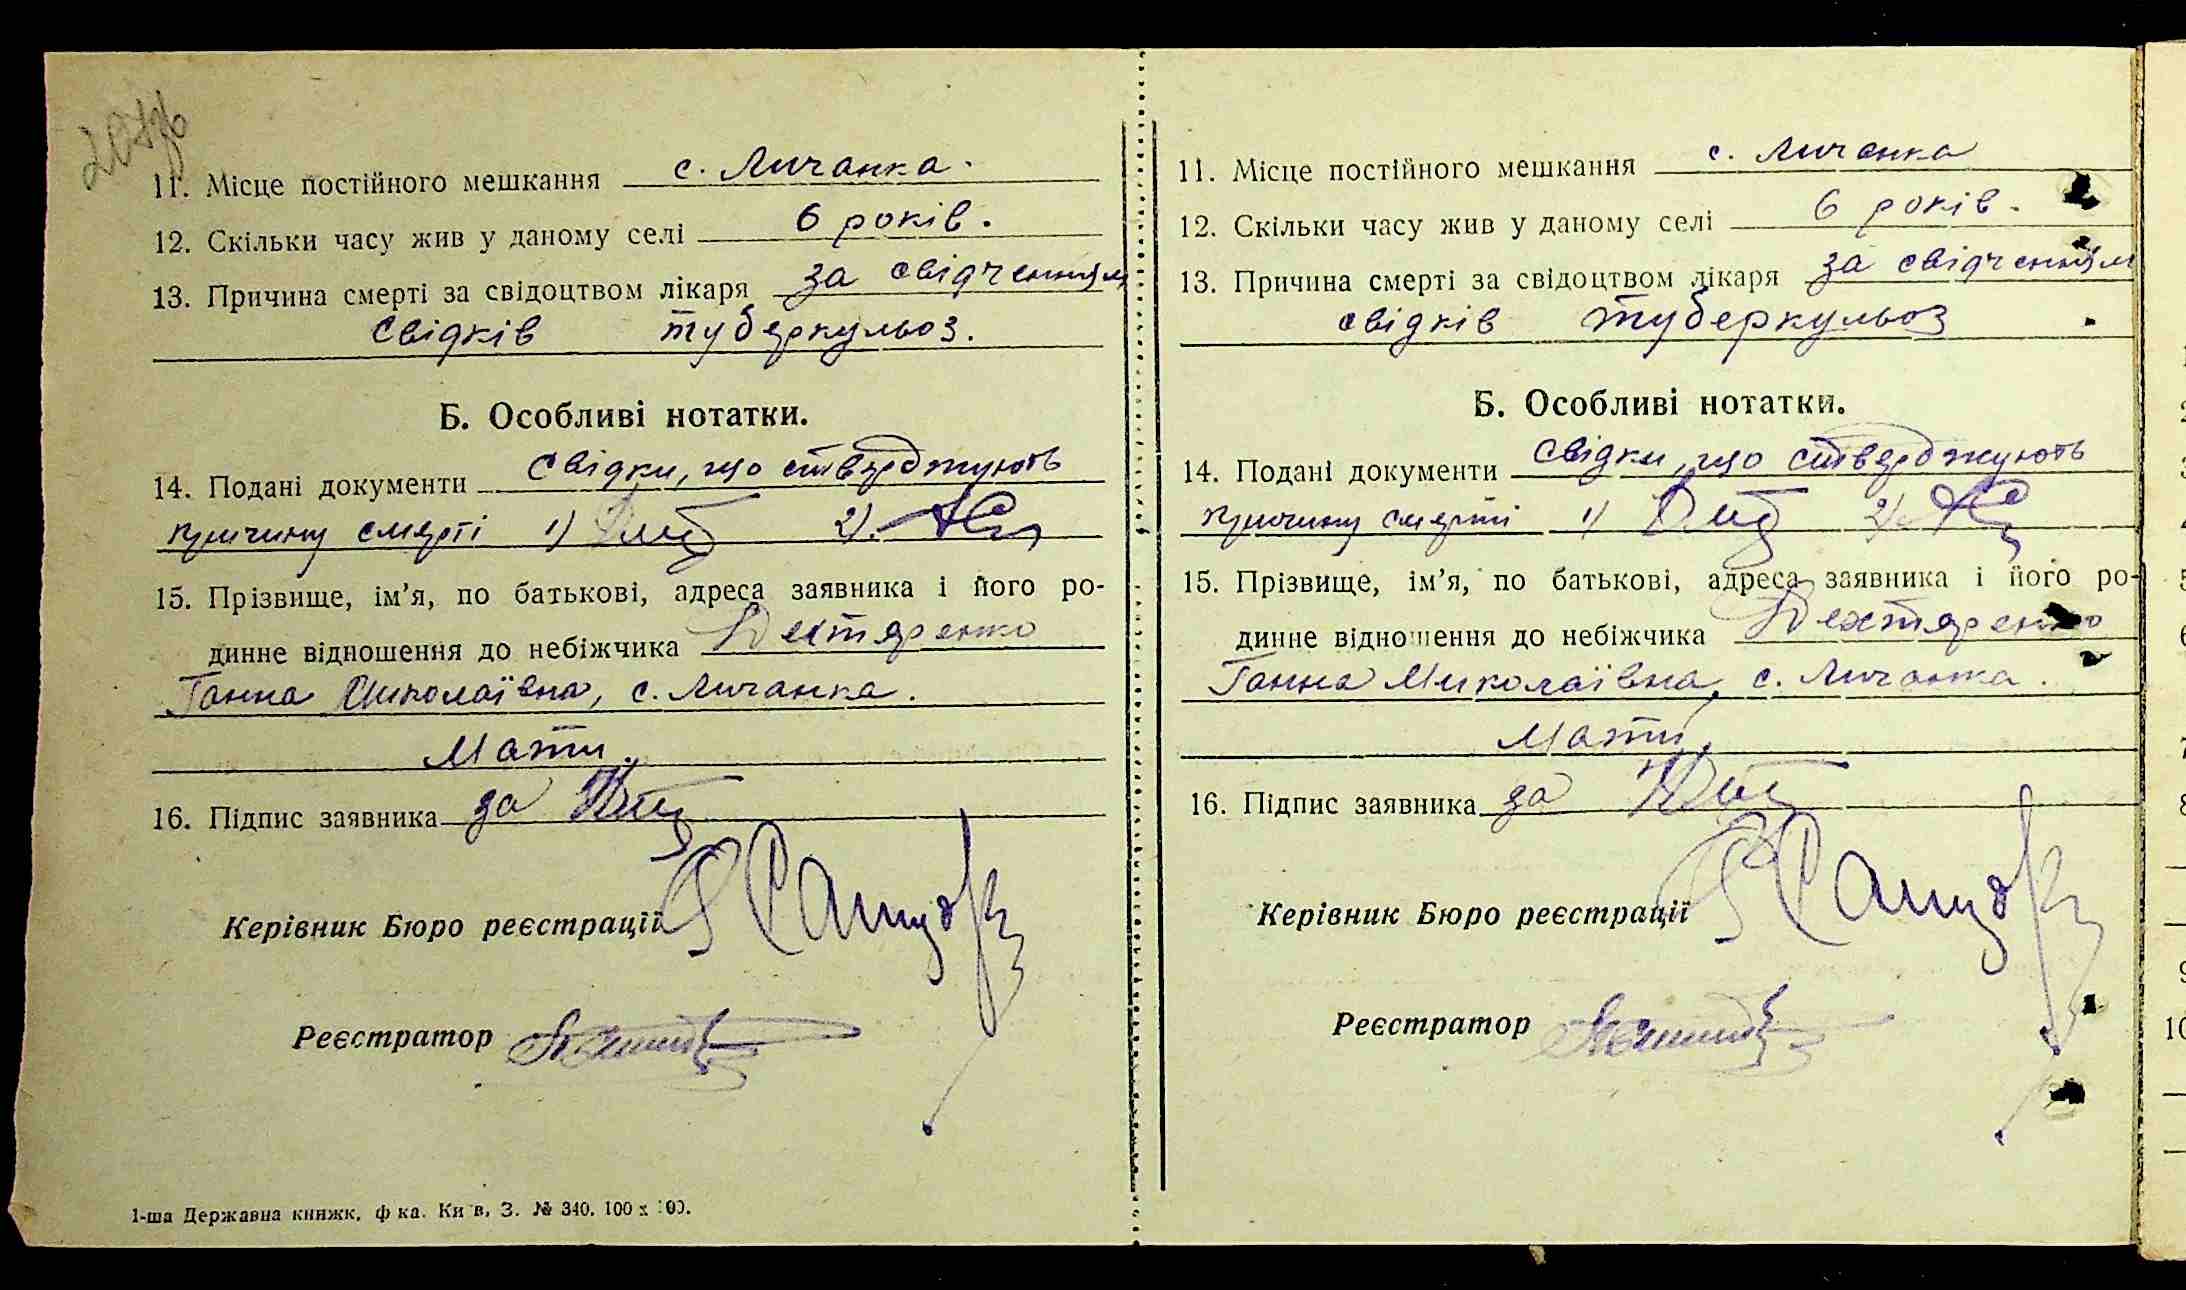 11. Місце постійного мешкання с. Личанка.
12. Скільки часу жив у даному селі 6 років.
13. Причина смерті за свідоцтвом лікаря за свідченням
свідків туберкульоз.
Б. Особливі нотатки.
14. Подані документи свідки, що стверджують
причину смерті 1) 2).
15. Прізвище, ім'я, по батькові, адреса заявника і його ро-
динне відношення до небіжчика Дехтяренко
Ганна Миколаївна, с. Личанка.
Мати.
16. Підпис заявника за
Керівник Бюро реєстрації
Реєстратор
1-ша Державна книжк. ф-ка. Київ, З. № 340. 100 х 100.
11. Місце постійного мешкання с. Личанка
12. Скільки часу жив у даному селі 6 років.
13. Причина смерті за свідоцтвом лікаря за свідченням
свідків туберкульоз
Б. Особливі нотатки.
14. Подані документи свідки, що стверджують
причину смерті 1) 2)
15. Прізвище, ім'я, по батькові, адреса заявника і його ро-
динне відношення до небіжчика Дехтяренко
Ганна Миколаївна, с. Личанка.
Мати.
16. Підпис заявника за
Керівник Бюро реєстрації
Реєстратор